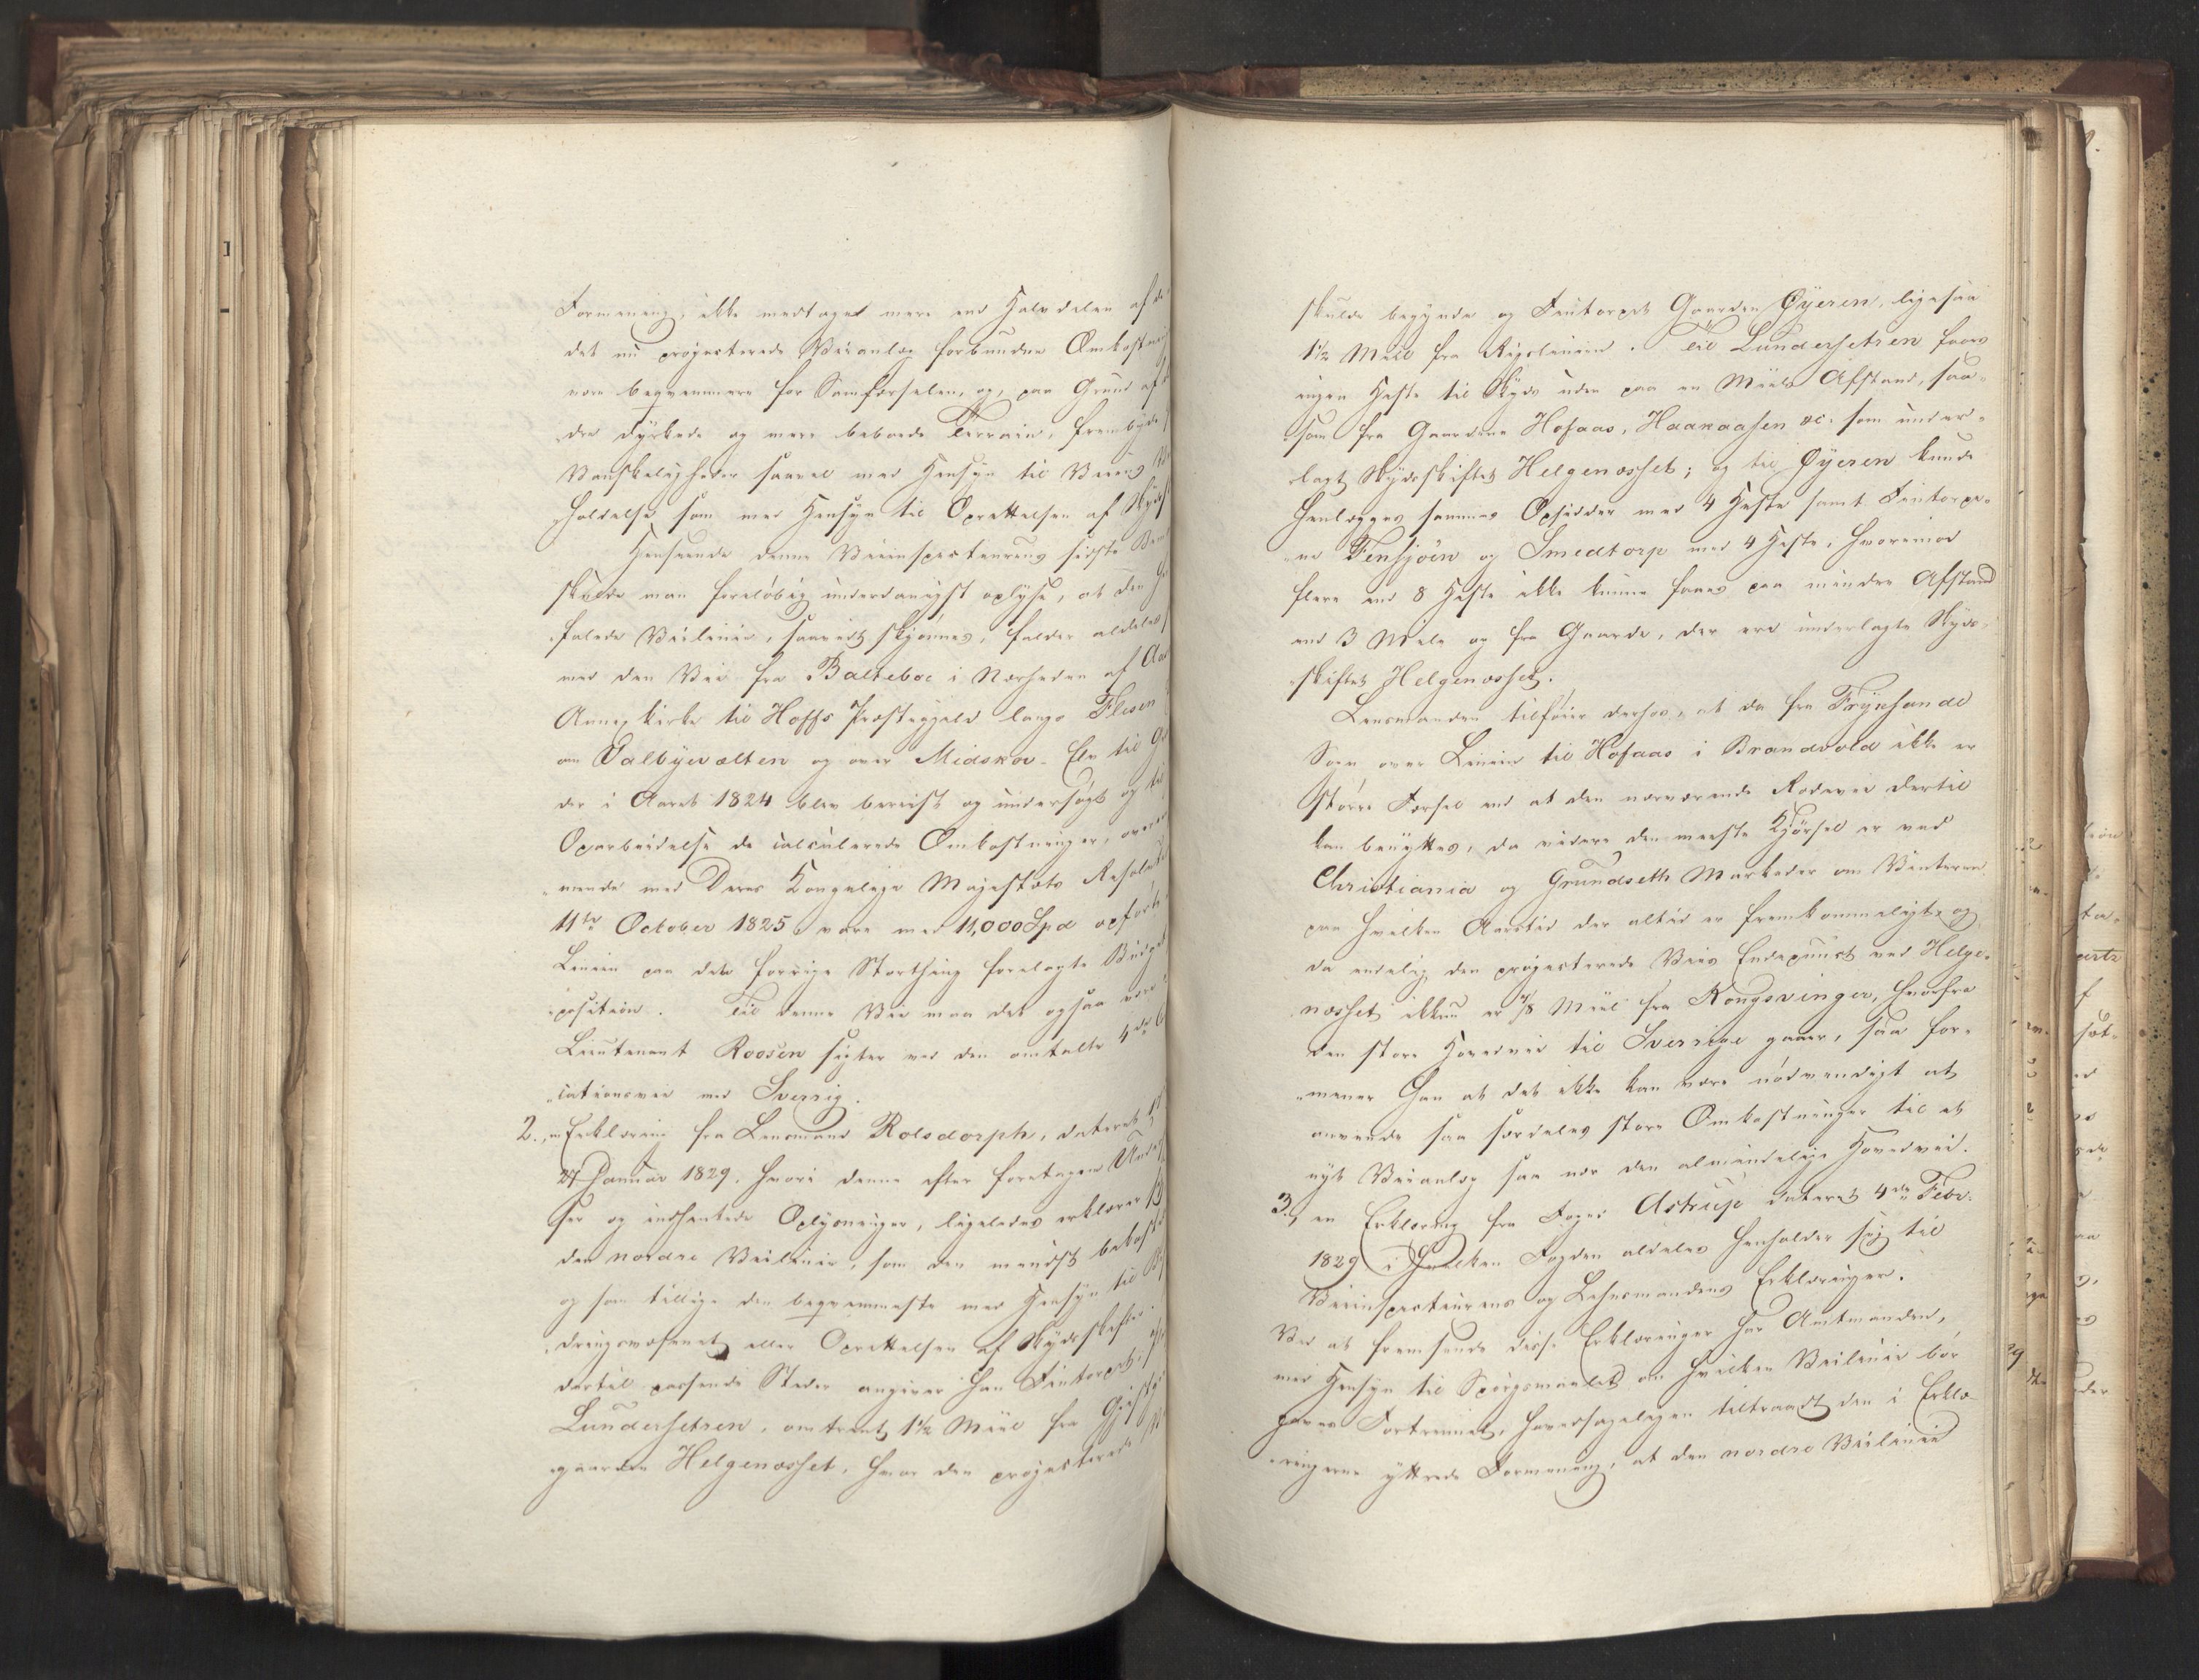 Formening, ikke medtaget mere end Halvdelen af de
det nu projecterede Veianlæg forbundne Omkostni
være beqvemmere for Samfærselen, og, paa Grund af
dre dyrkede og mere beboede Terrain, frembyde
Vanskeligheder saavel med Hensyn til Veiens
holdelse som med Hensyn til Oprettelsen af Skyds
Henseende denne Veiinspecteurens sidste Bem
skulde man foreløbig underdanigst oplyse, at den
falede Veilinie, saavidt skjønnes, falder aldeles
med den Vei fra Balteboe i Nærheden af Aas
Annexkirke til Hoffs Præstegjeld langs Flisen
om Dalbyevælten og over Midskov-Elv til
der i Aaret 1824 blev bereist og undersøgt og til
Oparbeidelse de calculerede Omkostninger, overe
mende med Deres Kongelige Majestæts Resoluti
11te October 1825 vare med 11,000 Spd opført
Linien paa den forrige Storthing forelagte Budget
position. Til denne Vei maa det ogsaa være
Lieutenant Roosen sigter ved den omtalte 4de
cationsvei med Sverrig.
2., en Erklæring fra Lensmand Rolsdorph, dateret
27 Januar 1829, hvori denne efter foretagen Unders
ser og indhentede Oplysninger, ligeledes erklærer
den nordre Veilinie, som den mindst bekost
og som tillige den beqvemmeste med Hensyn til
dringsvæsenet eller Oprettelsen af Skydsskifte
dertil passende Steder angiver han Fintorpet
Lundersetren, omtrent 1½ Miil fra Gjest
gaarden Helgenæsset, hvor den projecterede
skulde begynde og Fintorpet Gaarden Øyeren, ligesaa
1½ Miil fra Rigslinien. Til Lundersetren faaes
ingen Heste til Skyds uden paa en Miils Afstand, saa-
som fra Gaardene Hofaas, Haakaasen &c. som under-
lagt Skydsskiftet Helgenæsset; og til Øyeren kunde
henlægges sammes Opsidder med 4 Heste samt Fintorpe-
ne Tensjøen og Smedtorp med 4 Heste, hvorimod
flere end 8 Heste ikke kunne faaes paa mindre Afstand
end 3 Mile og fra Gaarde, der ere underlagte Skyds-
skiftet Helgenæsset.
Lensmanden tilføier derhos, at da fra Frysjande
Sogn over Linien til Hofaas i Brandvold ikke er
større Færsel end at den nærværende Rodevei dertil
kan benyttes, da videre den meeste Kjørsel er ved
Christiania og Grundseth Markeder om Vinteren
paa hvilken Aarstid der altid er fremkommeligt, og
da endelig den projecterede Veis Endepunct ved Helge-
næsset ikkun er ⅛ Miil fra Kongsvinger, hvorfra
den store Hovedvei til Sverrige gaaer, saa for-
mener han at det ikke kan være nødvendigt at
anvende saa særdeles store Omkostninger til et
nyt Veianlæg saa nær den almindelige Hovedvei.
3., en Erklæring fra Foged Astrup dateret 4de Febr.
1829 i hvilken Fogden aldeles henholder sig til
Veiinspecteurens og Lehnsmandens Erklæringer.
Ved at fremsende disse Erklæringer har Amtmanden,
med Hensyn til Spørgsmaalet om hvilken Veilinie bør
gives Fortrinnet, hovedsageligen tiltraadt den i Erklæ-
ringerne yttrede Formening, at den nordre Veilinie